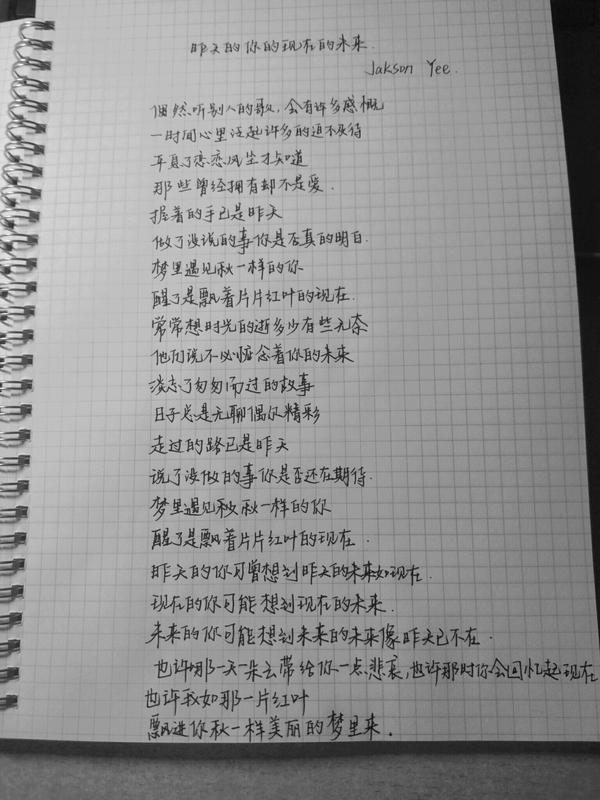 昨天的你的现在的未来.
Jakson Yee.
偶然听别人的歌,会有许多感慨
一时间心里泛起许多的迫不及待
年复了恋恋风尘才知道
那些曾经拥有却不是爱.
握着的手已是昨天
做了没说的事你是否真的明白.
梦里遇见秋一样的你
醒了是飘着片片红叶的现在.
常常想时光的逝多少有些无奈
他们说不必惦念着你的未来
淡忘了匆匆而过的故事
日子总是无聊偶尔精彩
走过的路已是昨天
说了没做的事你是否还在期待.
梦里遇见秋秋一样的你
醒了是飘着片片红叶的现在.
昨天的你可曾想到昨天的未来如现在.
现在的你可能想到现在的未来.
未来的你可能想到未来的未来像昨天已不在.
也许哪一天一朵云带给你一点悲哀,也许那时你会回忆起现在
也许我如那一片红叶
飘进你秋一样美丽的梦里来.